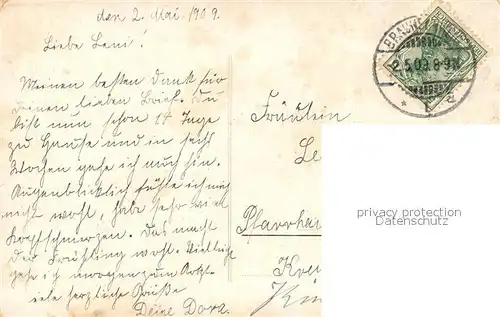 den 2. Mai. 1909.
Liebe Leni!
Meinen besten Dank für
Deinen lieben Brief. Du
bist nun schon 14 Tage
zu Hause und in sechs
Wochen gehe ich auch hin.
Augenblicklich fühle ich mich
nicht wohl, habe sehr viel
Kopfschmerzen. Das macht
der Frühling wohl. Vielleicht
gehe ich morgen zum Arzt.
viele herzliche Grüße
Deine Dora.
2.5.09. 8-9N
Fräulein
Le
Pfarrhau
Kre
privacy protection
Datenschutz